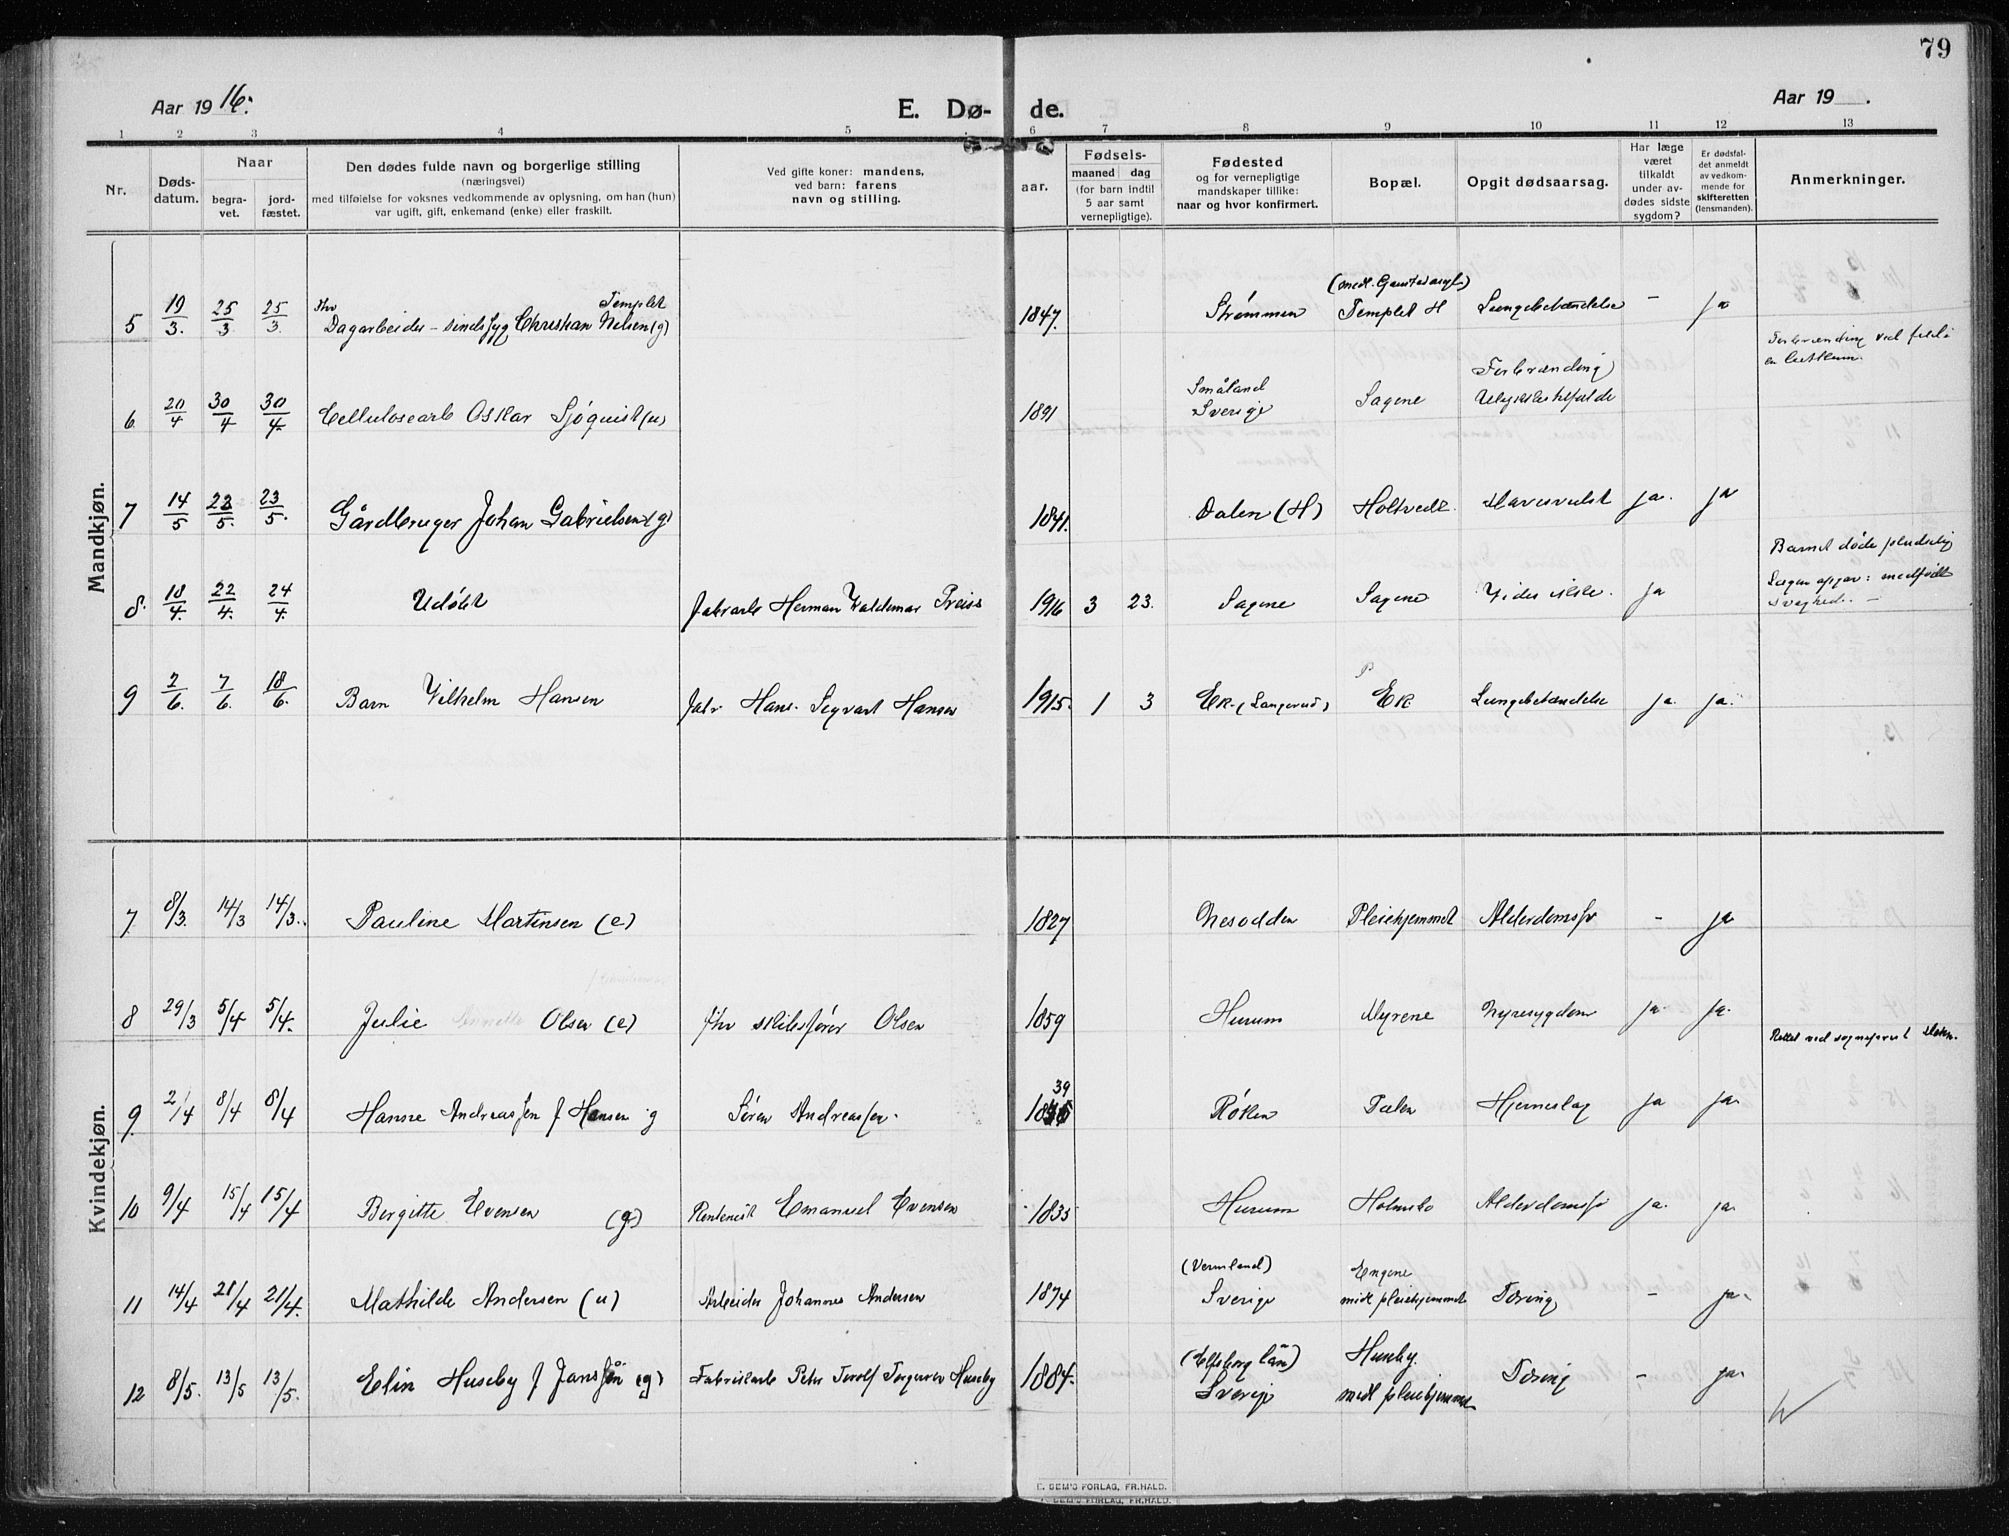 79
Aar 1916.
E. Dø- de.
Aar 19 .
1 2 3 4 5 6 7 8 9 10 11 12 13
Nr.
Døds-
datum.
Naar
begra-
vet.
jord-
fæstet.
Den dødes fulde navn og borgerlige stilling
(næringsvei)
med tilføielse for voksnes vedkommende av oplysning, om han (hun)
var ugift, gift, enkemand (enke) eller fraskilt.
Ved gifte koner: mandens,
ved barn: farens
navn og stilling.
aar.
Fødsels-
maaned dag
(for barn indtil
5 aar samt
vernepligtige).
Fødested
og for vernepligtige
mandskaper tillike:
naar og hvor konfirmert.
Bopæl.
Opgit dødsaarsag.
Har læge
været
tilkaldt
under av-
dødes sidste
sygdom?
Er dødsfal-
det anmeldt
av vedkom-
mende for
skifteretten
(lensmanden).
Anmerkninger.
Mandkjøn.
Templet (med. Gaustad asyl)
5 19/3. 25/3 25/3. Dagarbeider - sindssyg Christian Nilsen (g) 1847. Strømmen Templet H Lungebetændelse - ja
Forbrænding ved fald i
en lutkum.
Småland Forbrænding
6 20/4 30/4 30/4. Cellulosearb Oskar Sjöquist (u) 1891 Sverige Sagene Ulykkestilfælde
7 14/5 23/5. 23/5. Gårdbruger Johan Gabrielsen (g) 1841. Dalen (H) Holtvedt Mavesvulst ja. ja
Barnet døde pludselig
8. 18/4. 22/4. 24/4. Udøbt Fabrarb Herman Valdemar Preiss 1916 3 23. Sagene Sagene Vides ikke. ja
Lægen opgav: medfødt
svaghed. -
9 2/6. 7/6. 18/6. Barn Vilhelm Hansen Fabr Hans Sigvart Hansen 1915. 1 3 Ek (Langerud) Ek Lungebetændelse ja. ja.
Kvindekjøn.
7 8/3. 14/3 14/3. Pauline Martinsen (e) 1827 Nesodden Pleiehjemmet Alderdomssv - ja
8 29/3 5/4 5/4. Julie Olsen (e) fhv skibsfører Olsen 1859 Hurum Myrene Nyresygdom ja. ja.
Rettet ved sogneprest
39
9 2/4 8/4 8/4 Hanne Andreassen f Hansen g Søren Andreassen. 18 Røken Dalen Hjerneslag ja ja.
10 9/4 15/4 15/4 Birgitte Evensen (g) Rentenist Emanuel Evensen 1835 Hurum Holmsbo Alderdomssv ja. ja.
(Vermland) Engene
11 14/4 21/4 21/4. Mathilde Andersen (u) Arbeider Johannes Andersen 1874 Sverige midl pleiehjemmet Tæring - ja.
(Elfsborg län) Huseby.
12 8/5. 13/5 13/5. Elin Huseby f Janssön (g) Fabrikarb Peter Torolf Torgersen Huseby 1884. Sverige midl pleiehjemmet Tæring - ja.
E. SEM'S FORLAG, FR.HALD.
E. SEM'S FORLAG, FR.HALD.